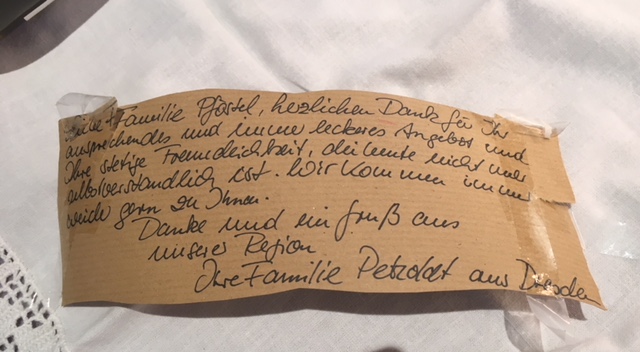 Familie Pfostel, herzlichen Dank für Ihr
ansprechendes und immer leckeres Angebot und
Ihre stetige Freundlichkeit, die heute nicht mehr
selbstverständlich ist. Wir kommen immer
gern zu Ihnen.
Danke und ein Gruß aus
unserer Region
Ihre Familie Petzoldt aus Dresden